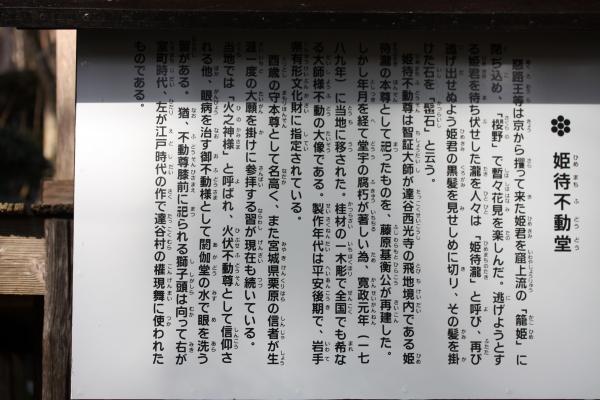 姫待不動堂
悪路王等は京から攫って来た姫君を窟上流の「籠姫」に
閉ぢ込め、「櫻野」で暫々花見を楽しんだ。逃げようとす
る姫君を待ち伏せした瀧を人々は「姫待瀧」と呼び、再び
逃げ出せぬよう姫君の黒髪を見せしめに切り、その髪を掛
けた石を「髢石」と云う。
姫待不動尊は智証大師が達谷西光寺の飛地境内である姫
待瀧の本尊として祀ったものを、藤原基衡公が再建した。
しかし年月を経て堂宇の腐朽が著しい為、寛政元年（一七
八九年）に当地に移された。桂材の一木彫で全国でも希な
る大師様不動の大像である。製作年代は平安後期で、岩手
県有形文化財に指定されている。
酉歳の守本尊として名高く、また宮城県栗原の信者が生
涯一度の大願を掛けに参拝する習が現在も続いている。
当地では「火之神様」と呼ばれ、火伏不動尊として信仰さ
れる他、眼病を治す御不動様として閼伽堂の水で眼を洗う
習がある。猶、不動尊膝前に祀られる獅子頭は向って右が
室町時代、左が江戸時代の作で達谷村の権現舞に使われた
ものである。